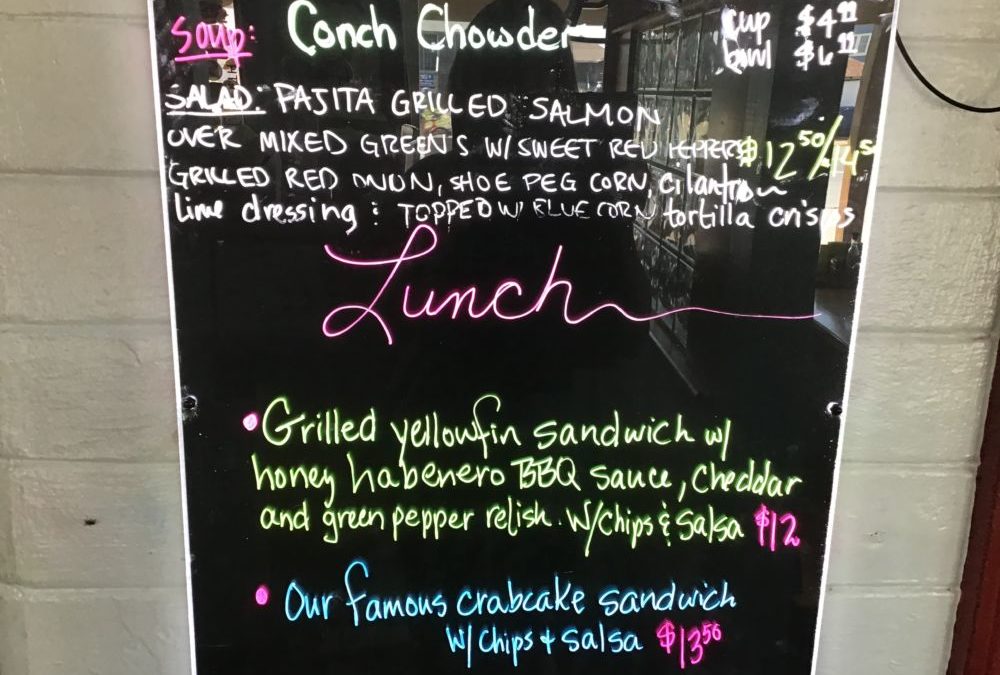 Soup: Conch Chowder cup $4.99
bowl $6.99
SALAD: FAJITA GRILLED SALMON
OVER MIXED GREENS W/ SWEET RED PEPPERS $12.50/14.50
GRILLED RED ONION, SHOE PEG CORN, cilantro
lime dressing & TOPPED W/ BLUE CORN tortilla crisps
Lunch
• Grilled yellowfin sandwich w/
honey habenero BBQ sauce, cheddar
and green pepper relish. W/chips & Salsa $12
• Our famous crabcake sandwich
W/ chips + salsa $13.50